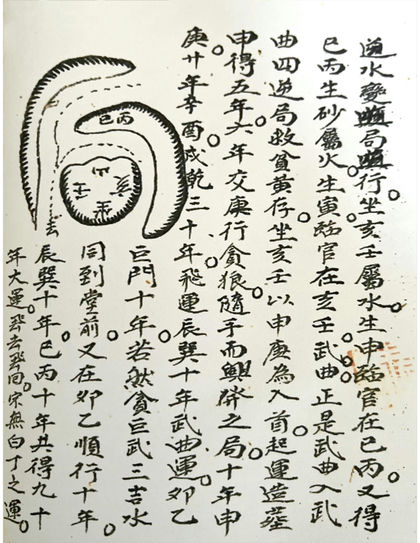 逆水變順局順行坐亥壬屬水生申臨官在巳丙又得
巳丙生砂屬火生寅臨官在亥壬武曲正是武曲入武
曲四逆局救貧黃存坐亥壬以申庚為入首起運造塟
申得五年六年交庚行貪狼隨手而興發之局十年申
庚廿年辛酉戌乾三十年飛運辰巽十年武曲運卯乙
巨門十年若然貪巨武三吉水
同到堂前又在卯乙順行十年
辰巽十年巳丙十年共得九十
年大運飛去飛回宗無白丁之運
丙巳
山
壬亥
去